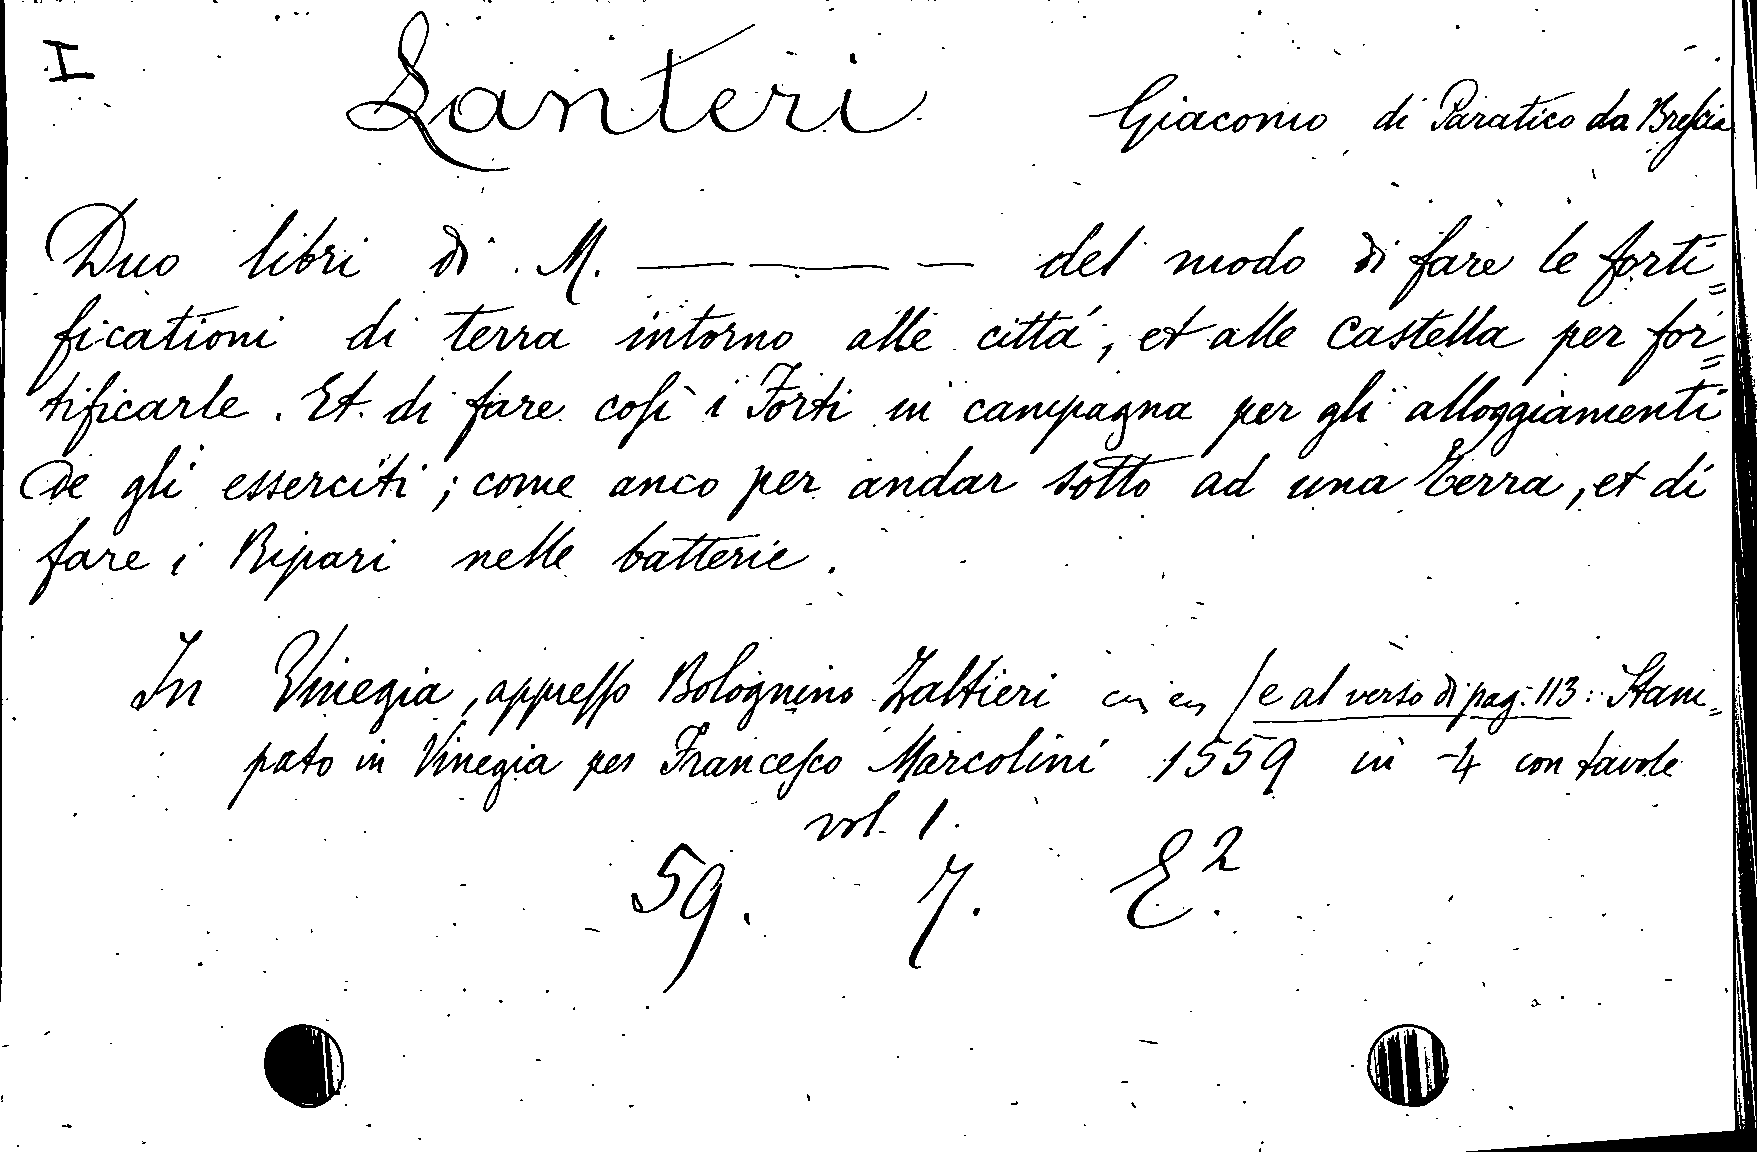 I
Lanteri Giacomo di Paratico da Breſcia
Duo libri di M. — — — del modo di fare le forti=
ficationi di terra intorno alle cittá, et alle Castella per for=
tificarle. Et di fare coſì i Forti in campagna per gli alloggiamenti
de gli esserciti; come anco per andar sotto ad una Terra, et di
fare i Ripari nelle batterie.
In Vinegia, appreſſo Bolognino Zaltieri (e al verso di pag. 113: Stam=
pato in Vinegia per Franceſco Marcolini 1559 in-4 con tavole
vol. 1.
59. 7. E².